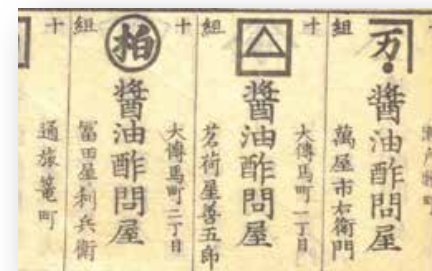 十組
万
醬油酢問屋
萬屋市右衛門
十組
醬油酢問屋
大傳馬町一丁目
茗荷屋善五郎
十組
柏
醬油酢問屋
大傳馬町二丁目
冨田屋利兵衛
十
通旅篭町